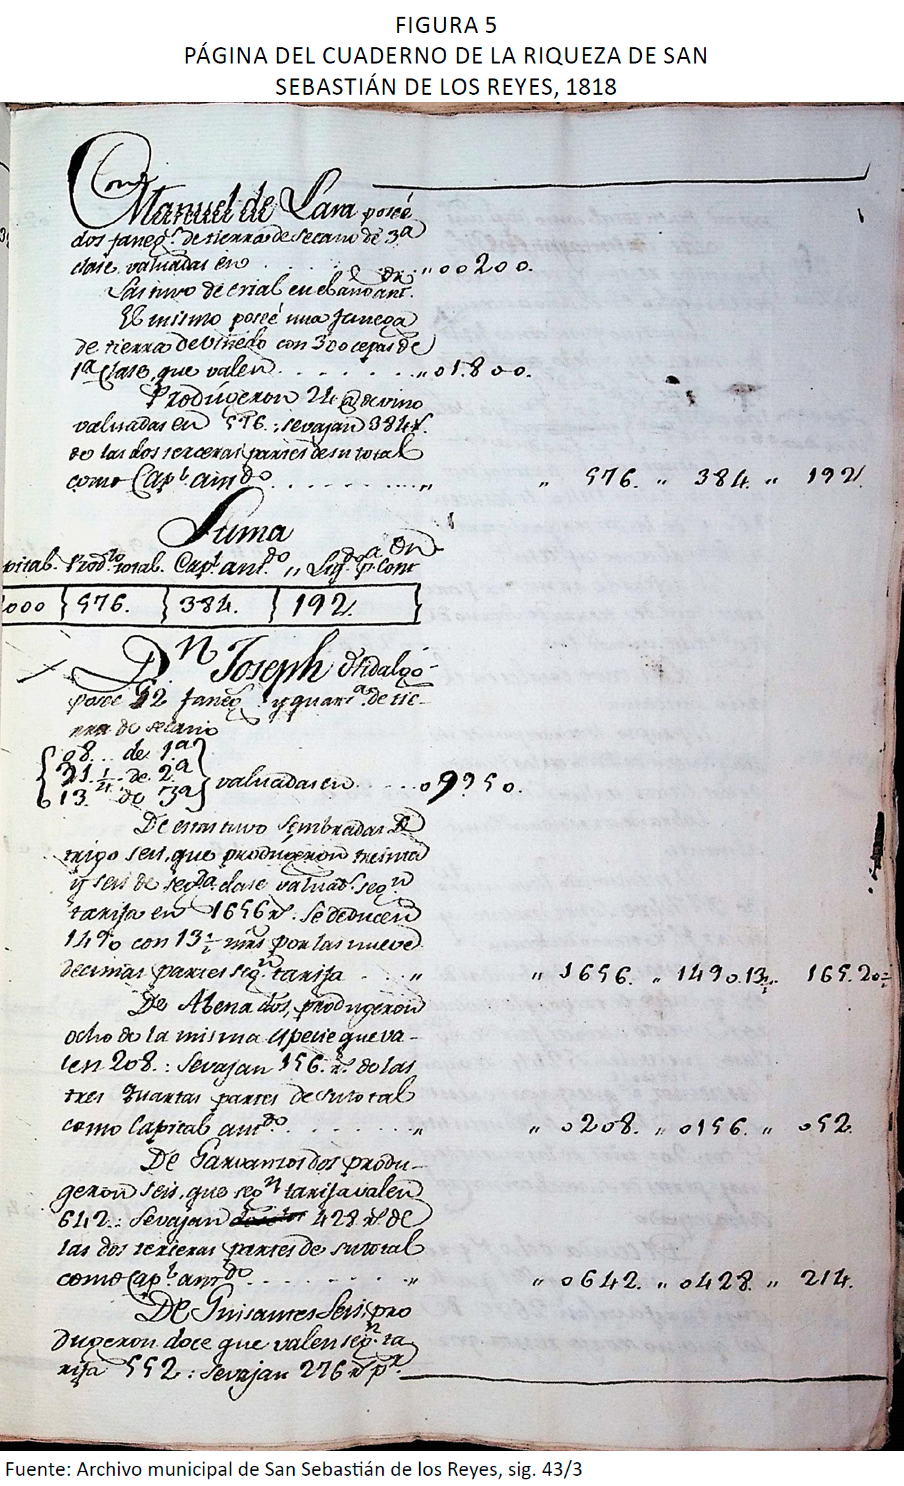 FIGURA 5
PÁGINA DEL CUADERNO DE LA RIQUEZA DE SAN
SEBASTIÁN DE LOS REYES, 1818
Manuel de Lara poseé
dos faneg.s de tierra de secano de 3.a
clase valuadas en . . . . . . . . " 00200.
Las tuvo de erial en el año ant.or
El mismo poseé una fanega
de tierra de viñedo con 300 cepas de
1.a clase, que valen . . . . . . " 01800.
Produgeron 24 @ de vino
valuadas en 576: se vajan 384 r.s
de las dos terceras partes de su total
como Cap.l anti.do . . . . . . . . " " 576. " 384. " 192.
Suma
pital. Prod.to total. Cap.l ant.do " Liq.do p.a Con.on
000 } 576. } 384. } 192. }
D.n Joseph Hidalgo
poseé 42 faneg.s y quar.a de tie-
rra de secano
08... de 1.a
21. 1/4.. de 2.a } valuadas en . . . . 09950.
13. de 3.a
De estas tuvo sembradas de
trigo seis, que produgeron treinta
y seis de seg.da clase valuad.s seg.n
tarifa en 1656 r.s se deducen
1490 con 13 1/2 mrs por las nueve
decimas partes seg.n tarifa . . . " " 1656. " 1490.13 1/2. 165.20 1/2
De Abena dos, produgeron
ocho de la misma especie que va-
len 208.: se vajan 156 r.s de las
tres quartas partes de su total
como Capital anti.do . . . . . . . " " 0208. " 0156. " 052.
De Garvanzos dos produ-
geron seis, que seg.n tarifa valen
642.: se vajan 428 r.s de
las dos terceras partes de su total
como Cap.l anti.do . . . . . . . . " " 0642. " 0428. " 214.
De Guisantes Seis pro
dugeron doce que valen seg.n ta
rifa 552: se vajan 276 r.s p.r
Fuente: Archivo municipal de San Sebastián de los Reyes, sig. 43/3